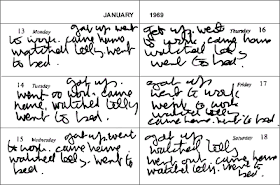 JANUARY 1969
13 Monday got up went
to work. came home
watched telly went
to bed.
14 got up.
went to work. came
home. watched telly
went to bed.
15 Wednesday got up. went
to work. came home
watched telly. went to
bed.
got up. went Thursday 16
to work. came home
watched telly
went to bed.
got up. 17
went to work
went to bed.
got up. Saturday 18
watched telly
went out. came home
watched telly went to bed.